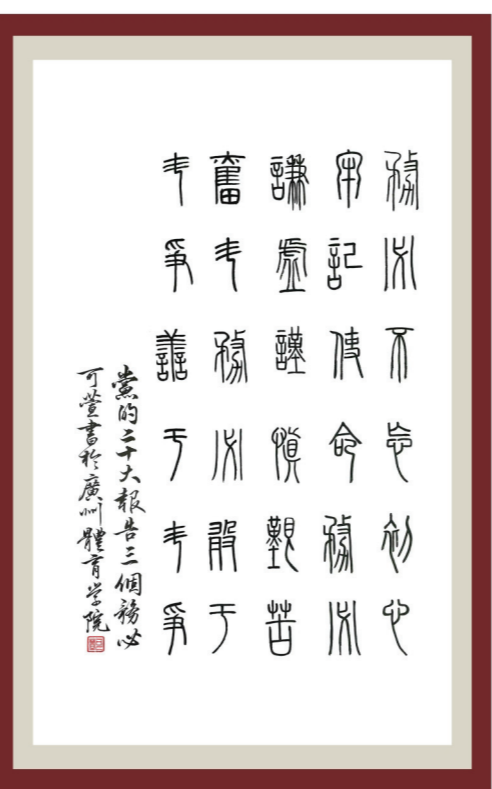 務必不忘初心
牢記使命務必
謙虛謹慎艱苦
奮斗務必敢于
斗爭善于斗爭
黨的二十大報告三個務必
可萱書於廣州體育学院